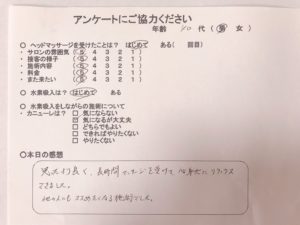 アンケートにご協力ください
年齢 40 代 ( 男 女 )
〇 ヘッドマッサージを受けたことは? はじめて ある( 回目)
・サロンの雰囲気 ( 5 4 3 2 1 )
・接客の様子 ( 5 4 3 2 1 )
・施術内容 ( 5 4 3 2 1 )
・料金 ( 5 4 3 2 1 )
・また来たい ( 5 4 3 2 1 )
〇 水素吸入は? はじめて ある
〇 水素吸入をしながらの施術について
・カニューレは? 気にならない
気になるが大丈夫
どちらでもよい
できればやりたくない
やりたくない
〇本日の感想
長時間 受けて リラックス
できました。
他の人にも すすめたくなる 施術でした。